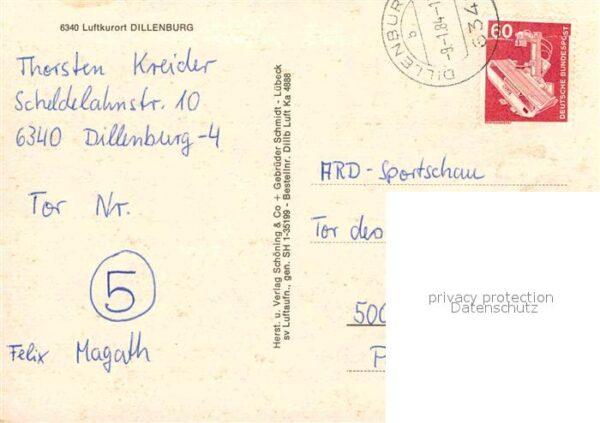 6340 Luftkurort DILLENBURG
Thorsten Kreider
Scheldelahnstr. 10
6340 Dillenburg-4
Tor Nr.
5
Felix Magath
Herst. u. Verlag Schöning & Co + Gebrüder Schmidt - Lübeck
sv Luftaufn., gen. SH 1-35199 - Bestellnr. Dillb Luft Ka 4888
DILLENBURG
b
-9-1.84-1
634
60
DEUTSCHE BUNDESPOST
ARD-Sportschau
Tor des
500
privacy protection
Datenschutz